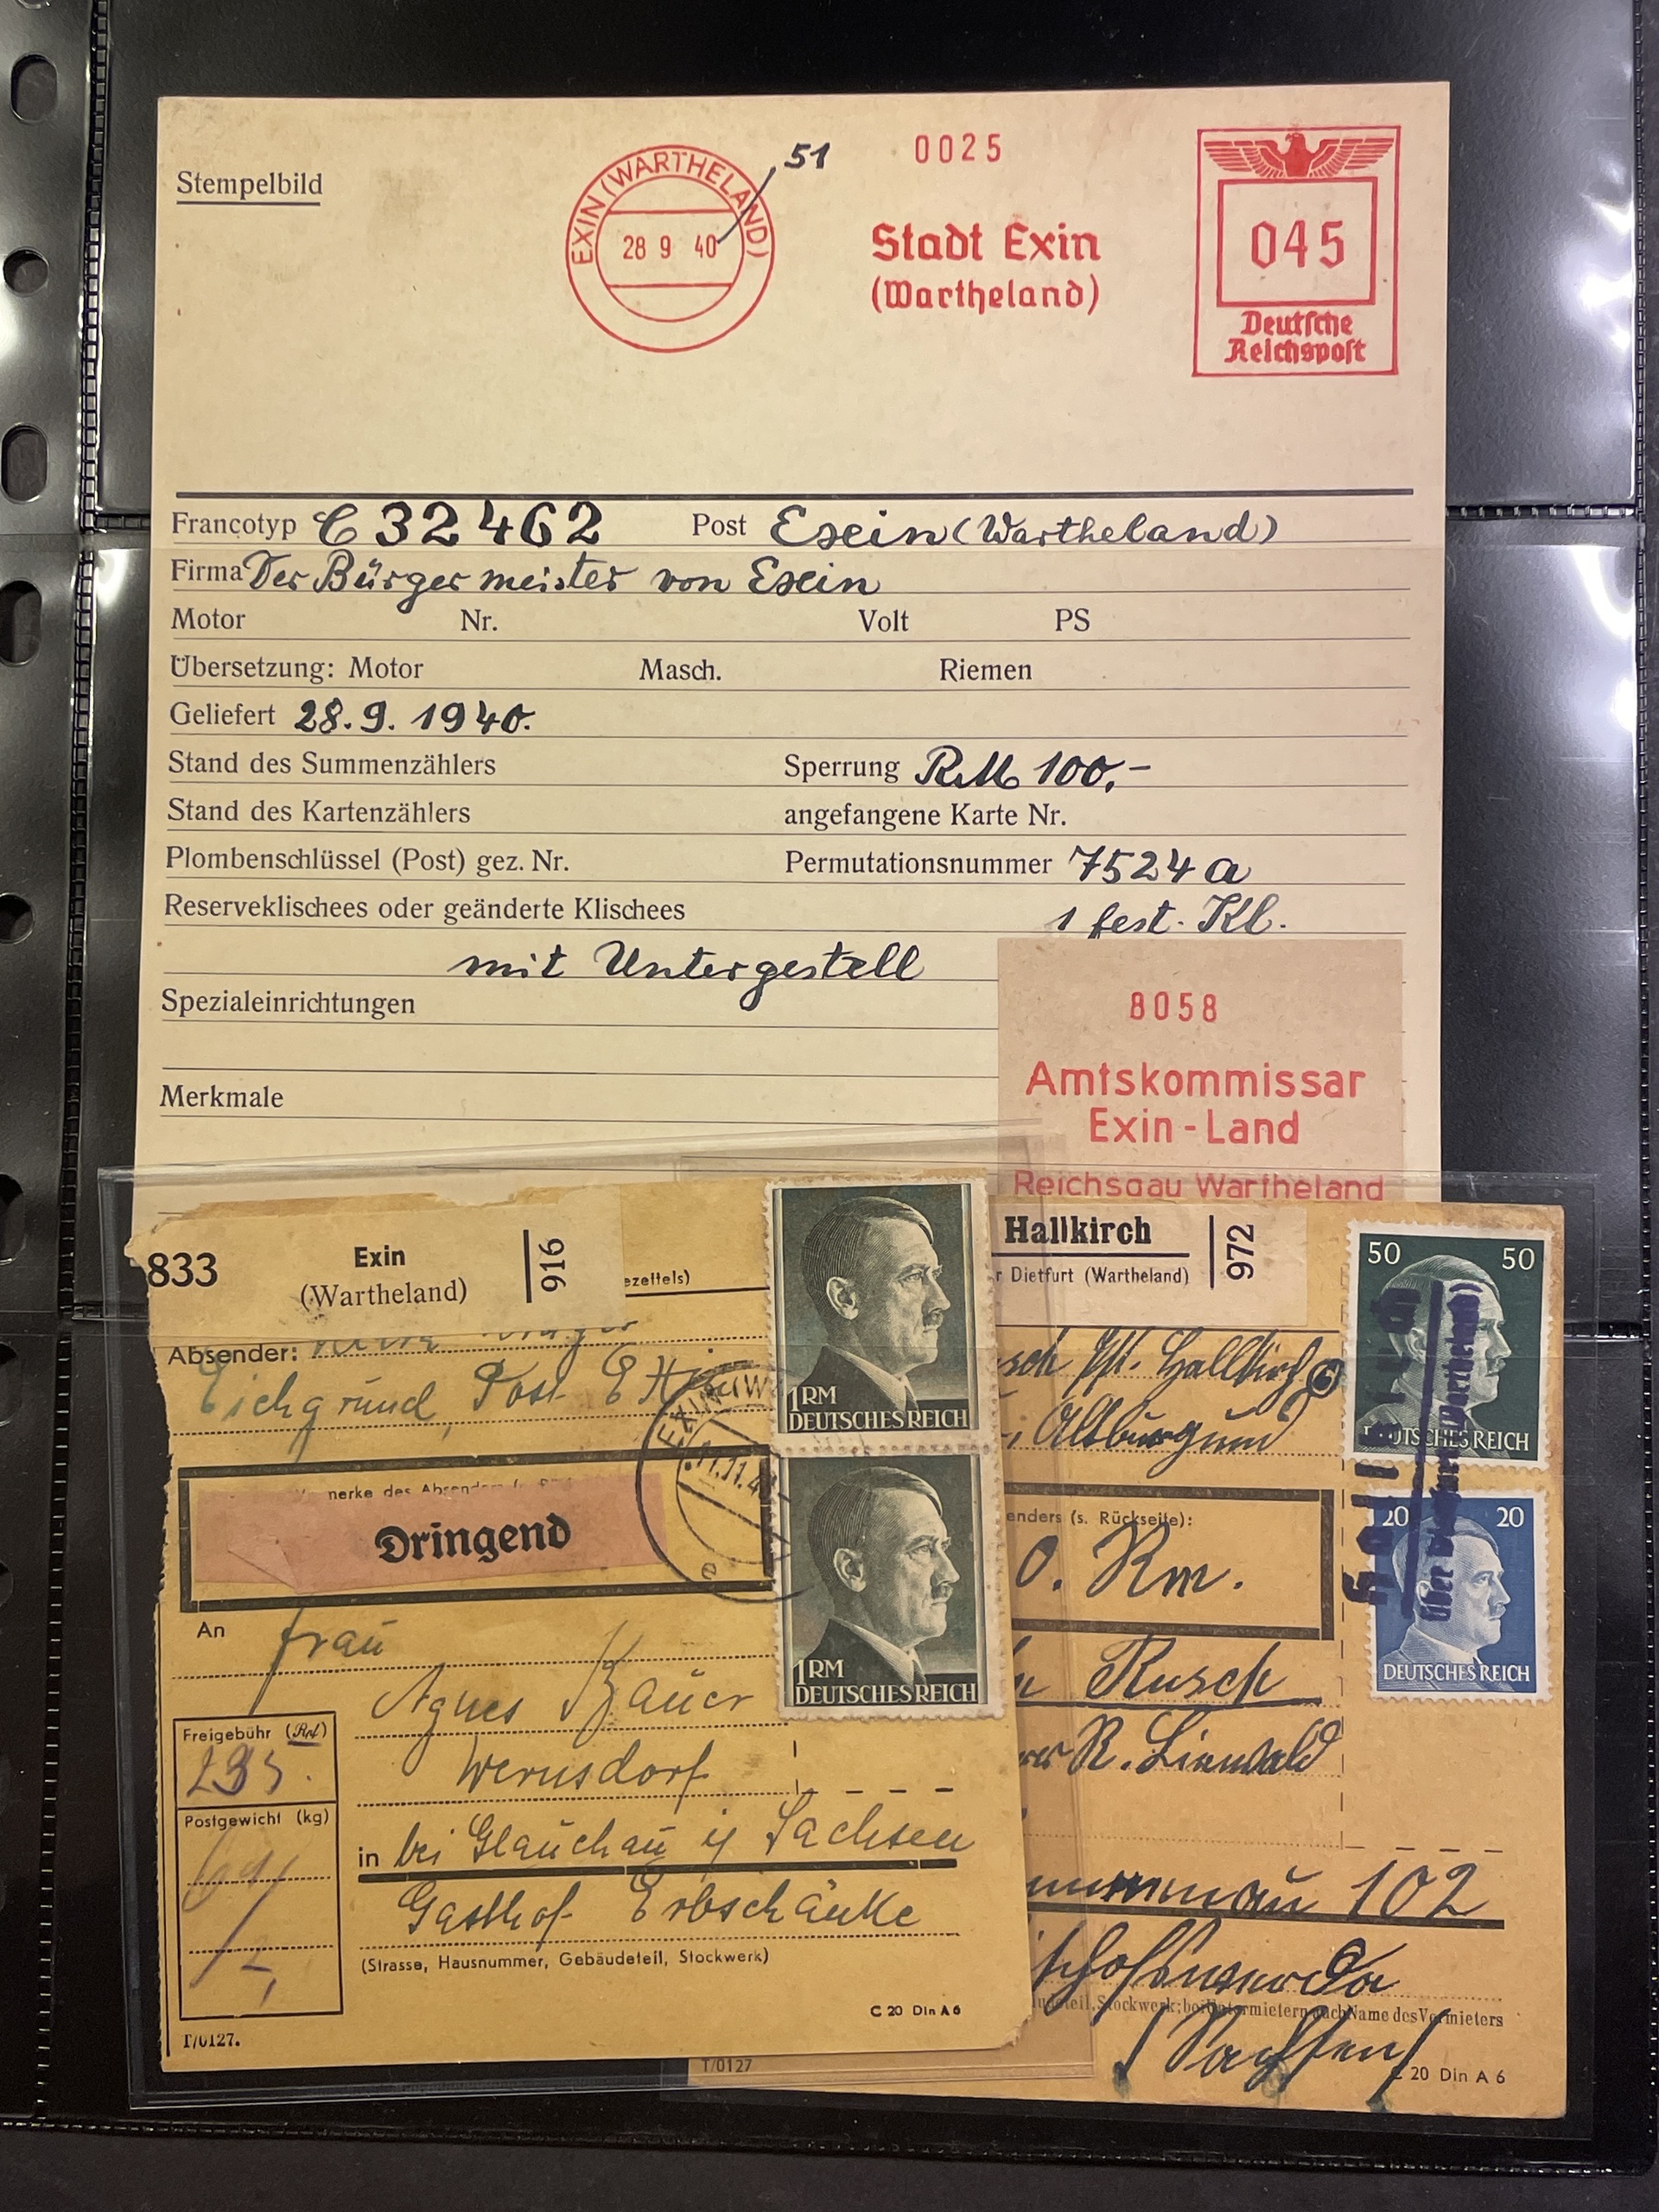 Stempelbild
EXIN (WARTHELAND)
28 9 40
51
0025
Stadt Exin
(Wartheland)
045
Deutsche
Reichspost
Francotyp C 32462 Post Exin (Wartheland)
Firma Der Bürgermeister von Exin
Motor Nr. Volt PS
Übersetzung: Motor Masch. Riemen
Geliefert 28.9.1940.
Stand des Summenzählers Sperrung RM 100,-
Stand des Kartenzählers angefangene Karte Nr.
Plombenschlüssel (Post) gez. Nr. Permutationsnummer 7524 a
Reserveklischees oder geänderte Klischees 1 fest. Kl.
mit Untergestell
Spezialeinrichtungen
Merkmale
8058
Amtskommissar
Exin - Land
Reichsgau Wartheland
833
Exin
(Wartheland)
916
ezettels)
Absender:
Eichgrund, Post Exin
nerke des Absend
Dringend
EXIN
.11.4
e
1RM
DEUTSCHES REICH
1RM
DEUTSCHES REICH
An Frau
Agnes Bauer
Wernsdorf
in bei Glauchau i/ Sachsen
Gasthof Erbschänke
(Strasse, Hausnummer, Gebäudeteil, Stockwerk)
Freigebühr (Rpf)
235.
Postgewicht (kg)
C 20 Din A 6
T/0127.
Hallkirch
r Dietfurt (Wartheland)
972
50 50
DEUTSCHES REICH
20 20
DEUTSCHES REICH
Hallkirch
über Dietfurt (Wartheland)
sch Pst. Hallkirch
Altburgund
enders (s. Rückseite):
0. Rm.
Rusch
R. Linwald
au 102
udeteil, Stockwerk; bei Untermietern auch Name des Vermieters
(Sachsen)
C 20 Din A 6
T/0127